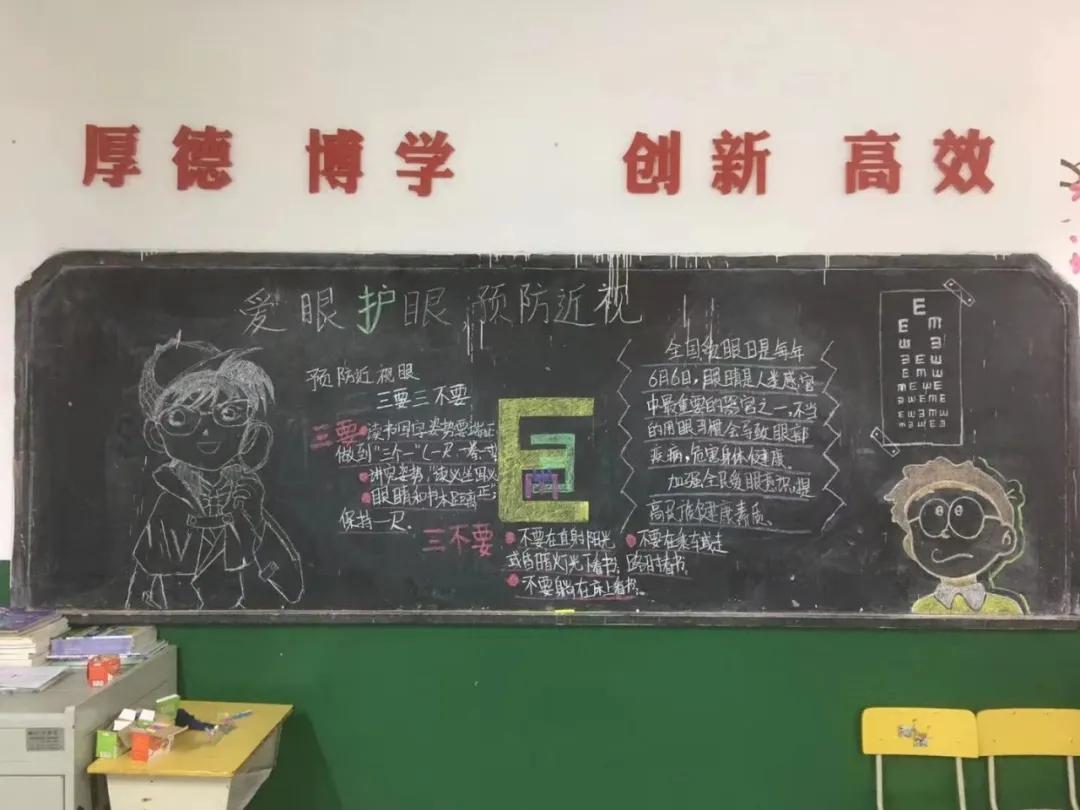 厚德 博学 创新 高效
爱眼护眼 预防近视
预防近视眼
三要三不要
三要
读书写字姿势要端正
做到"三个一"(一尺、一拳、一寸
讲究姿势,
眼睛和书本距离
保持一尺.
三不要
不要在直射阳光
或昏暗灯光下看书;
不要躺在床上看书;
不要在乘车或走
路时看书;
全国爱眼日是每年
6月6日,眼睛是人类感官
中最重要的器官之一,不当
的用眼习惯会导致眼部
疾病,危害身体健康.
加强全民爱眼意识,提
高民族健康素质.
E
E
m